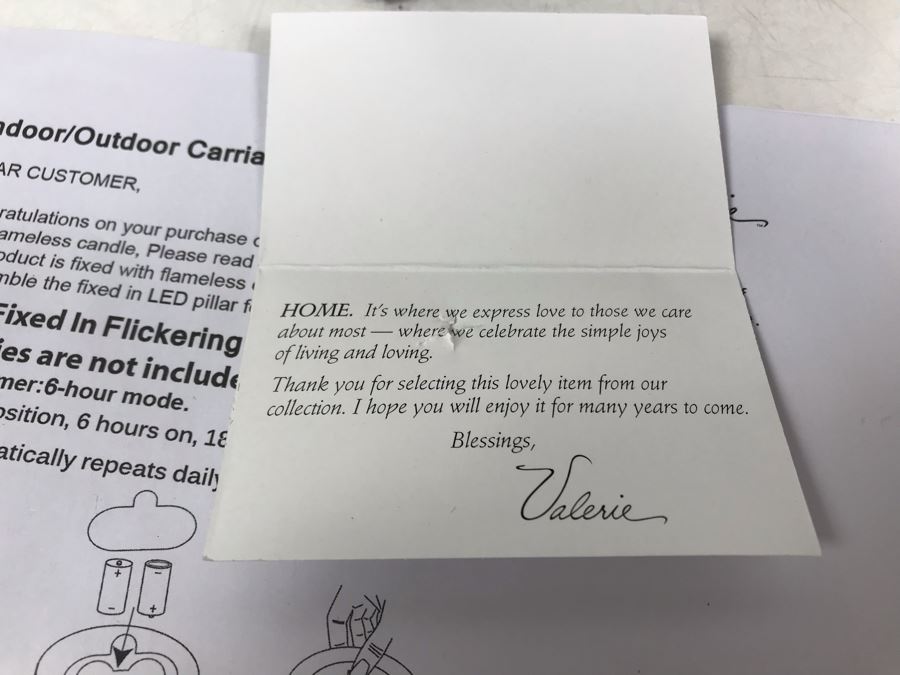 ndoor/Outdoor Carria
AR CUSTOMER,
ratulations on your purchase
ameless candle, Please read
oduct is fixed with flameless
mble the fixed in LED pillar f
Fixed In Flickering
ies are not include
mer:6-hour mode.
osition, 6 hours on, 18
atically repeats daily
HOME. It's where we express love to those we care
about most — where we celebrate the simple joys
of living and loving.
Thank you for selecting this lovely item from our
collection. I hope you will enjoy it for many years to come.
Blessings,
Valerie